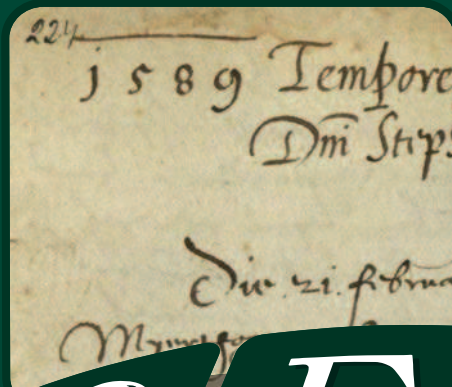 224
1589 Tempore
Dm̄ Step
Die 21. februa